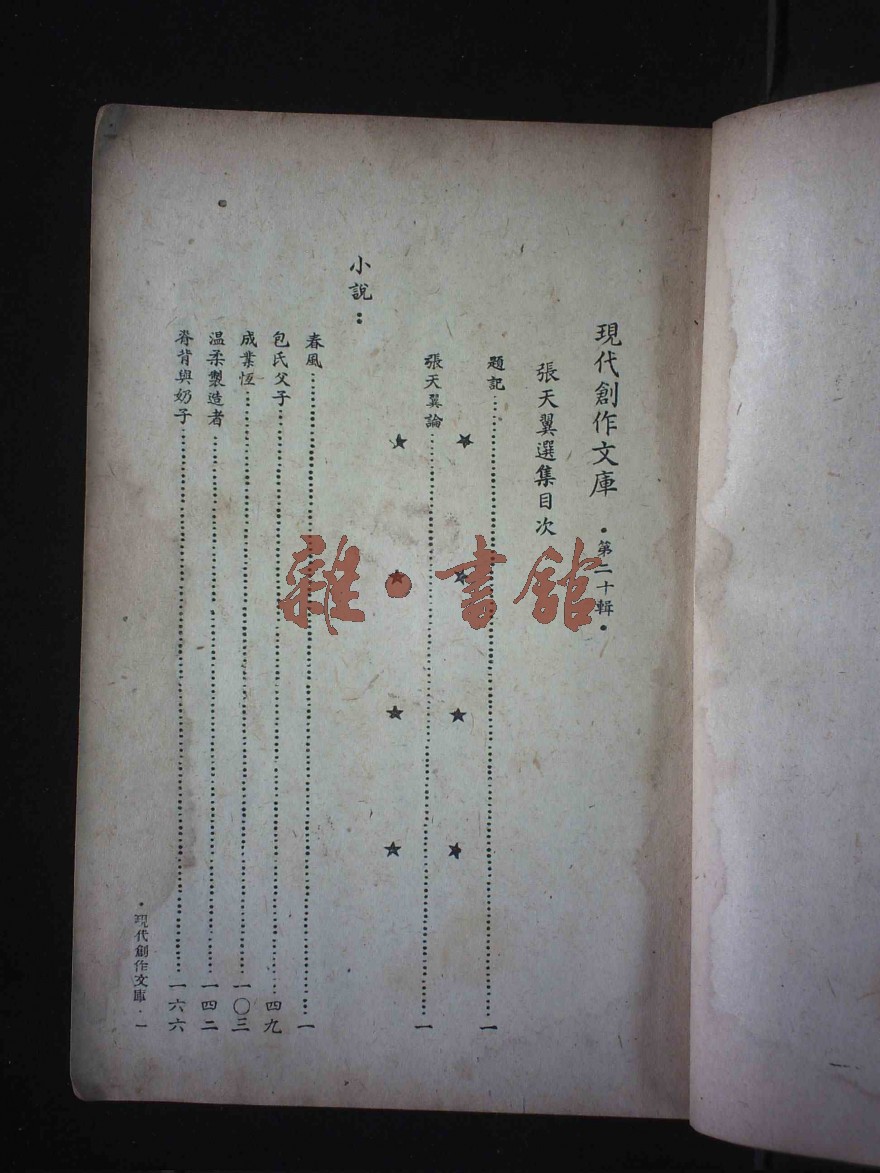 現代創作文庫 •第二十輯•
張天翼選集目次
題記…………一
張天翼論…………一
小說：
春風…………一
包氏父子…………四九
成業恆…………一〇三
温柔製造者…………一四二
脊背與奶子…………一六六
•現代創作文庫•一
雜·書館